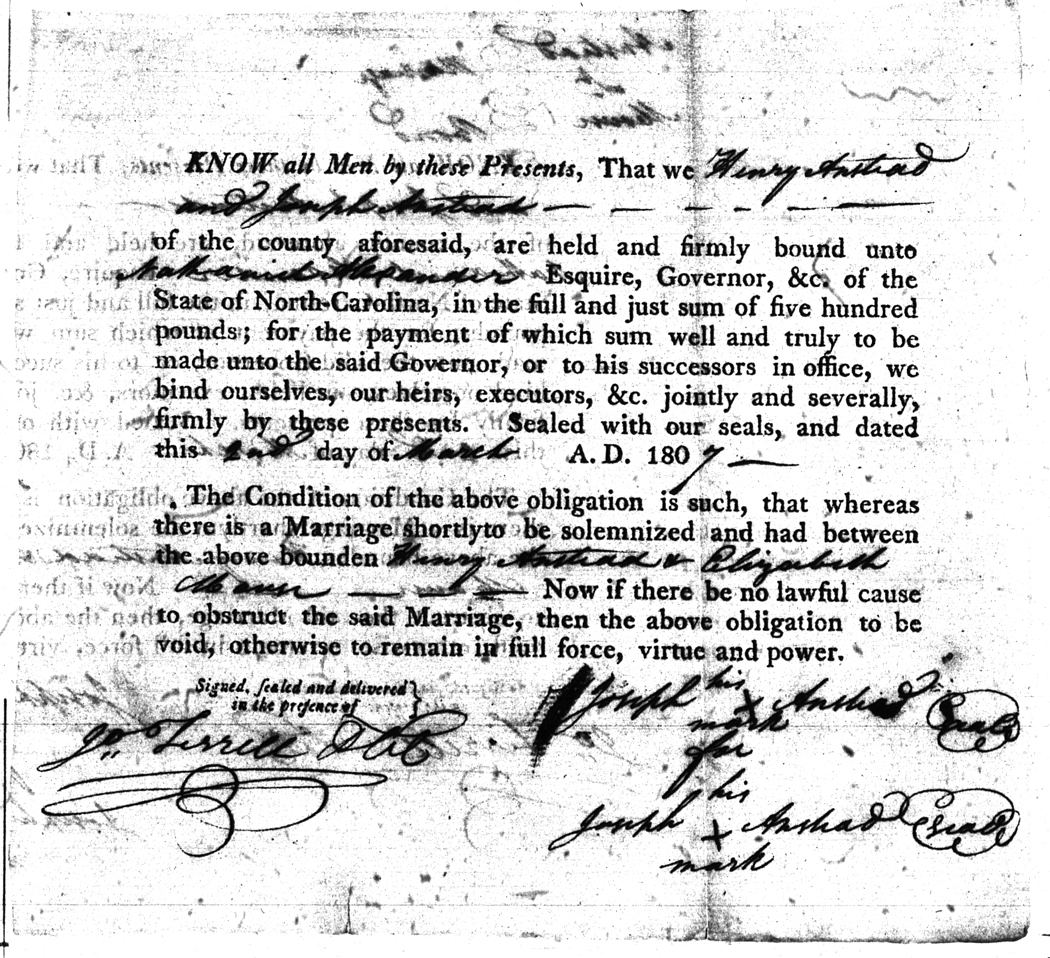 KNOW all Men by these Presents, That we Henry Anstead
and Joseph Anstead
of the county aforesaid, are held and firmly bound unto
Nathaniel Alexander Esquire, Governor, &c. of the
State of North-Carolina, in the full and just sum of five hundred
pounds; for the payment of which sum well and truly to be
made unto the said Governor, or to his successors in office, we
bind ourselves, our heirs, executors, &c. jointly and severally,
firmly by these presents. Sealed with our seals, and dated
this 2nd day of March A. D. 1807
The Condition of the above obligation is such, that whereas
there is a Marriage shortly to be solemnized and had between
the above bounden Henry Anstead & Elizabeth
Now if there be no lawful cause
to obstruct the said Marriage, then the above obligation to be
void, otherwise to remain in full force, virtue and power.
Signed, sealed and delivered
in the presence of
Jo. Terrell
Joseph his x Anstead Seal
mark
for
Joseph his x Anstead Seal
mark